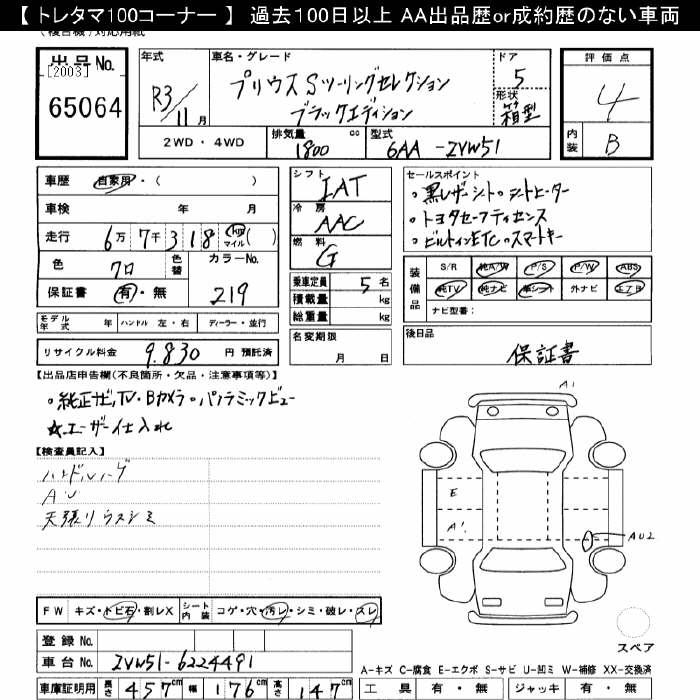 【 トレタマ100コーナー 】 過去100日以上 AA出品歴or成約歴のない車両
(複合機)対応用紙
出品No.
[2003]
65064
年式
R3/11月
車名・グレード
プリウスSツーリングセレクション
ブラックエディション
ドア
5
形状
箱型
評価点
4
内装
B
2WD ・ 4WD
排気量
1800 cc
型式
6AA-ZVW51
車歴 自家用・( )
車検 年 月
走行 6万 7千 3 1 8 km マイル ( )
色 クロ 色替 カラーNo.
保証書 有・無 219
モデル年式 年 ハンドル 左・右 ディーラー・並行
リサイクル料金 9,830 円 預託済
シフト
IAT
冷房
AAC
燃料
G
乗車定員 5 名
積載量 kg
総重量 kg
名変期限
月 日
セールスポイント
。黒レザーシート。シートヒーター
。トヨタセーフティセンス
。ビルトインETC。スマートキー
装備品
S/R 純A/W P/S P/W ABS
純TV 純ナビ 革シート 外ナビ エアB
ナビ型番:
後日品
保証書
【出品店申告欄(不良箇所・欠品・注意事項等)】
。純正ナビ,TV・Bカメラ。パノラミックビュー
☆ユーザー仕入れ
【検査員記入】
ハンドルハゲ
AU
天張りウスシミ
A1
E
A1
AU2
FW キズ・トビ石・割レX シート内装 コゲ・穴・汚レ・シミ・破レ・スレ
登録No.
車台No. ZVW51-6224491
車庫証明用 長さ 457cm 幅 176cm 高さ 147cm
スペア
A-キズ C-腐食 E-エクボ S-サビ U-凹ミ W-補修 XX-交換済
工具 有・無 ジャッキ 有・無